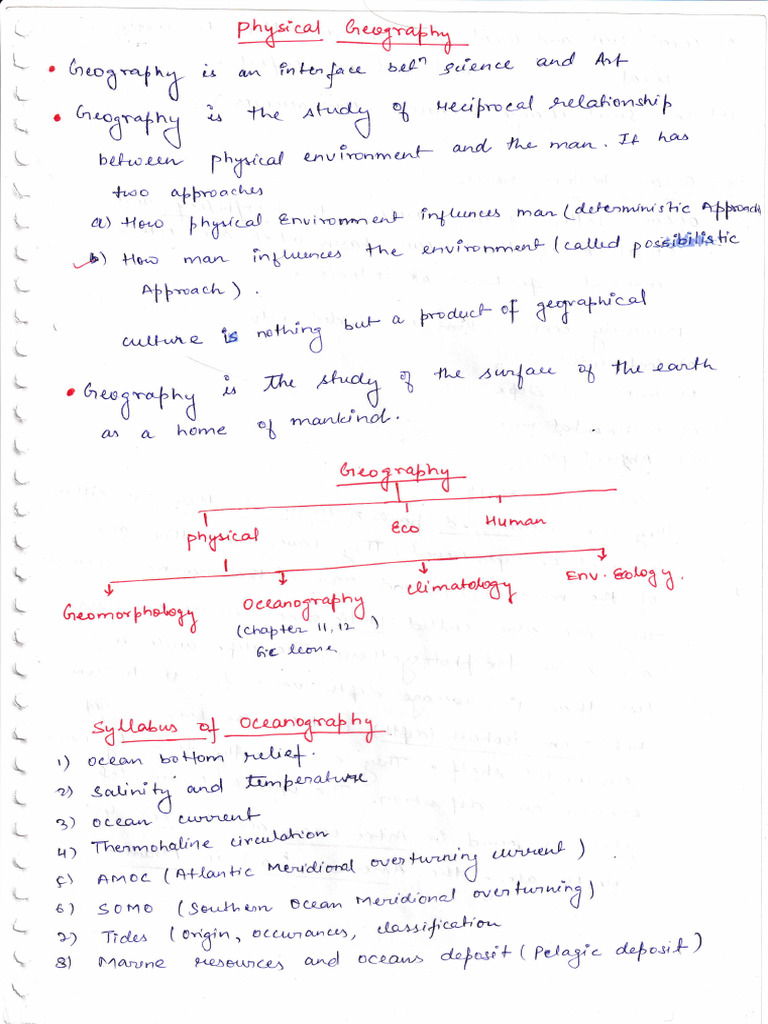 Physical Geography
• Geography is an interface betⁿ science and Art
• Geography is the study of reciprocal relationship
between physical environment and the man. It has
two approaches
a) How physical Environment influnces man (deterministic Approach
b) How man influnces the environment (called possibilistic
Approach).
culture is nothing but a product of geographical
• Geography is the study of the surface of the earth
as a home of mankind.
Geography
Physical Eco Human
Geomorphology Oceanography Climatology Env. Ecology.
(Chapter 11, 12 )
G.C leong
Syllabus of Oceanography
1) Ocean bottom relief.
2) Salinity and temperature
3) Ocean current
4) Thermohaline circulation
5) AMOC (Atlantic Meridional overturning current)
6) SOMO (Southern Ocean Meridional overturning)
7) Tides (origin, occurances, classification
8) Marine resources and oceans deposit (Pelagic deposit)